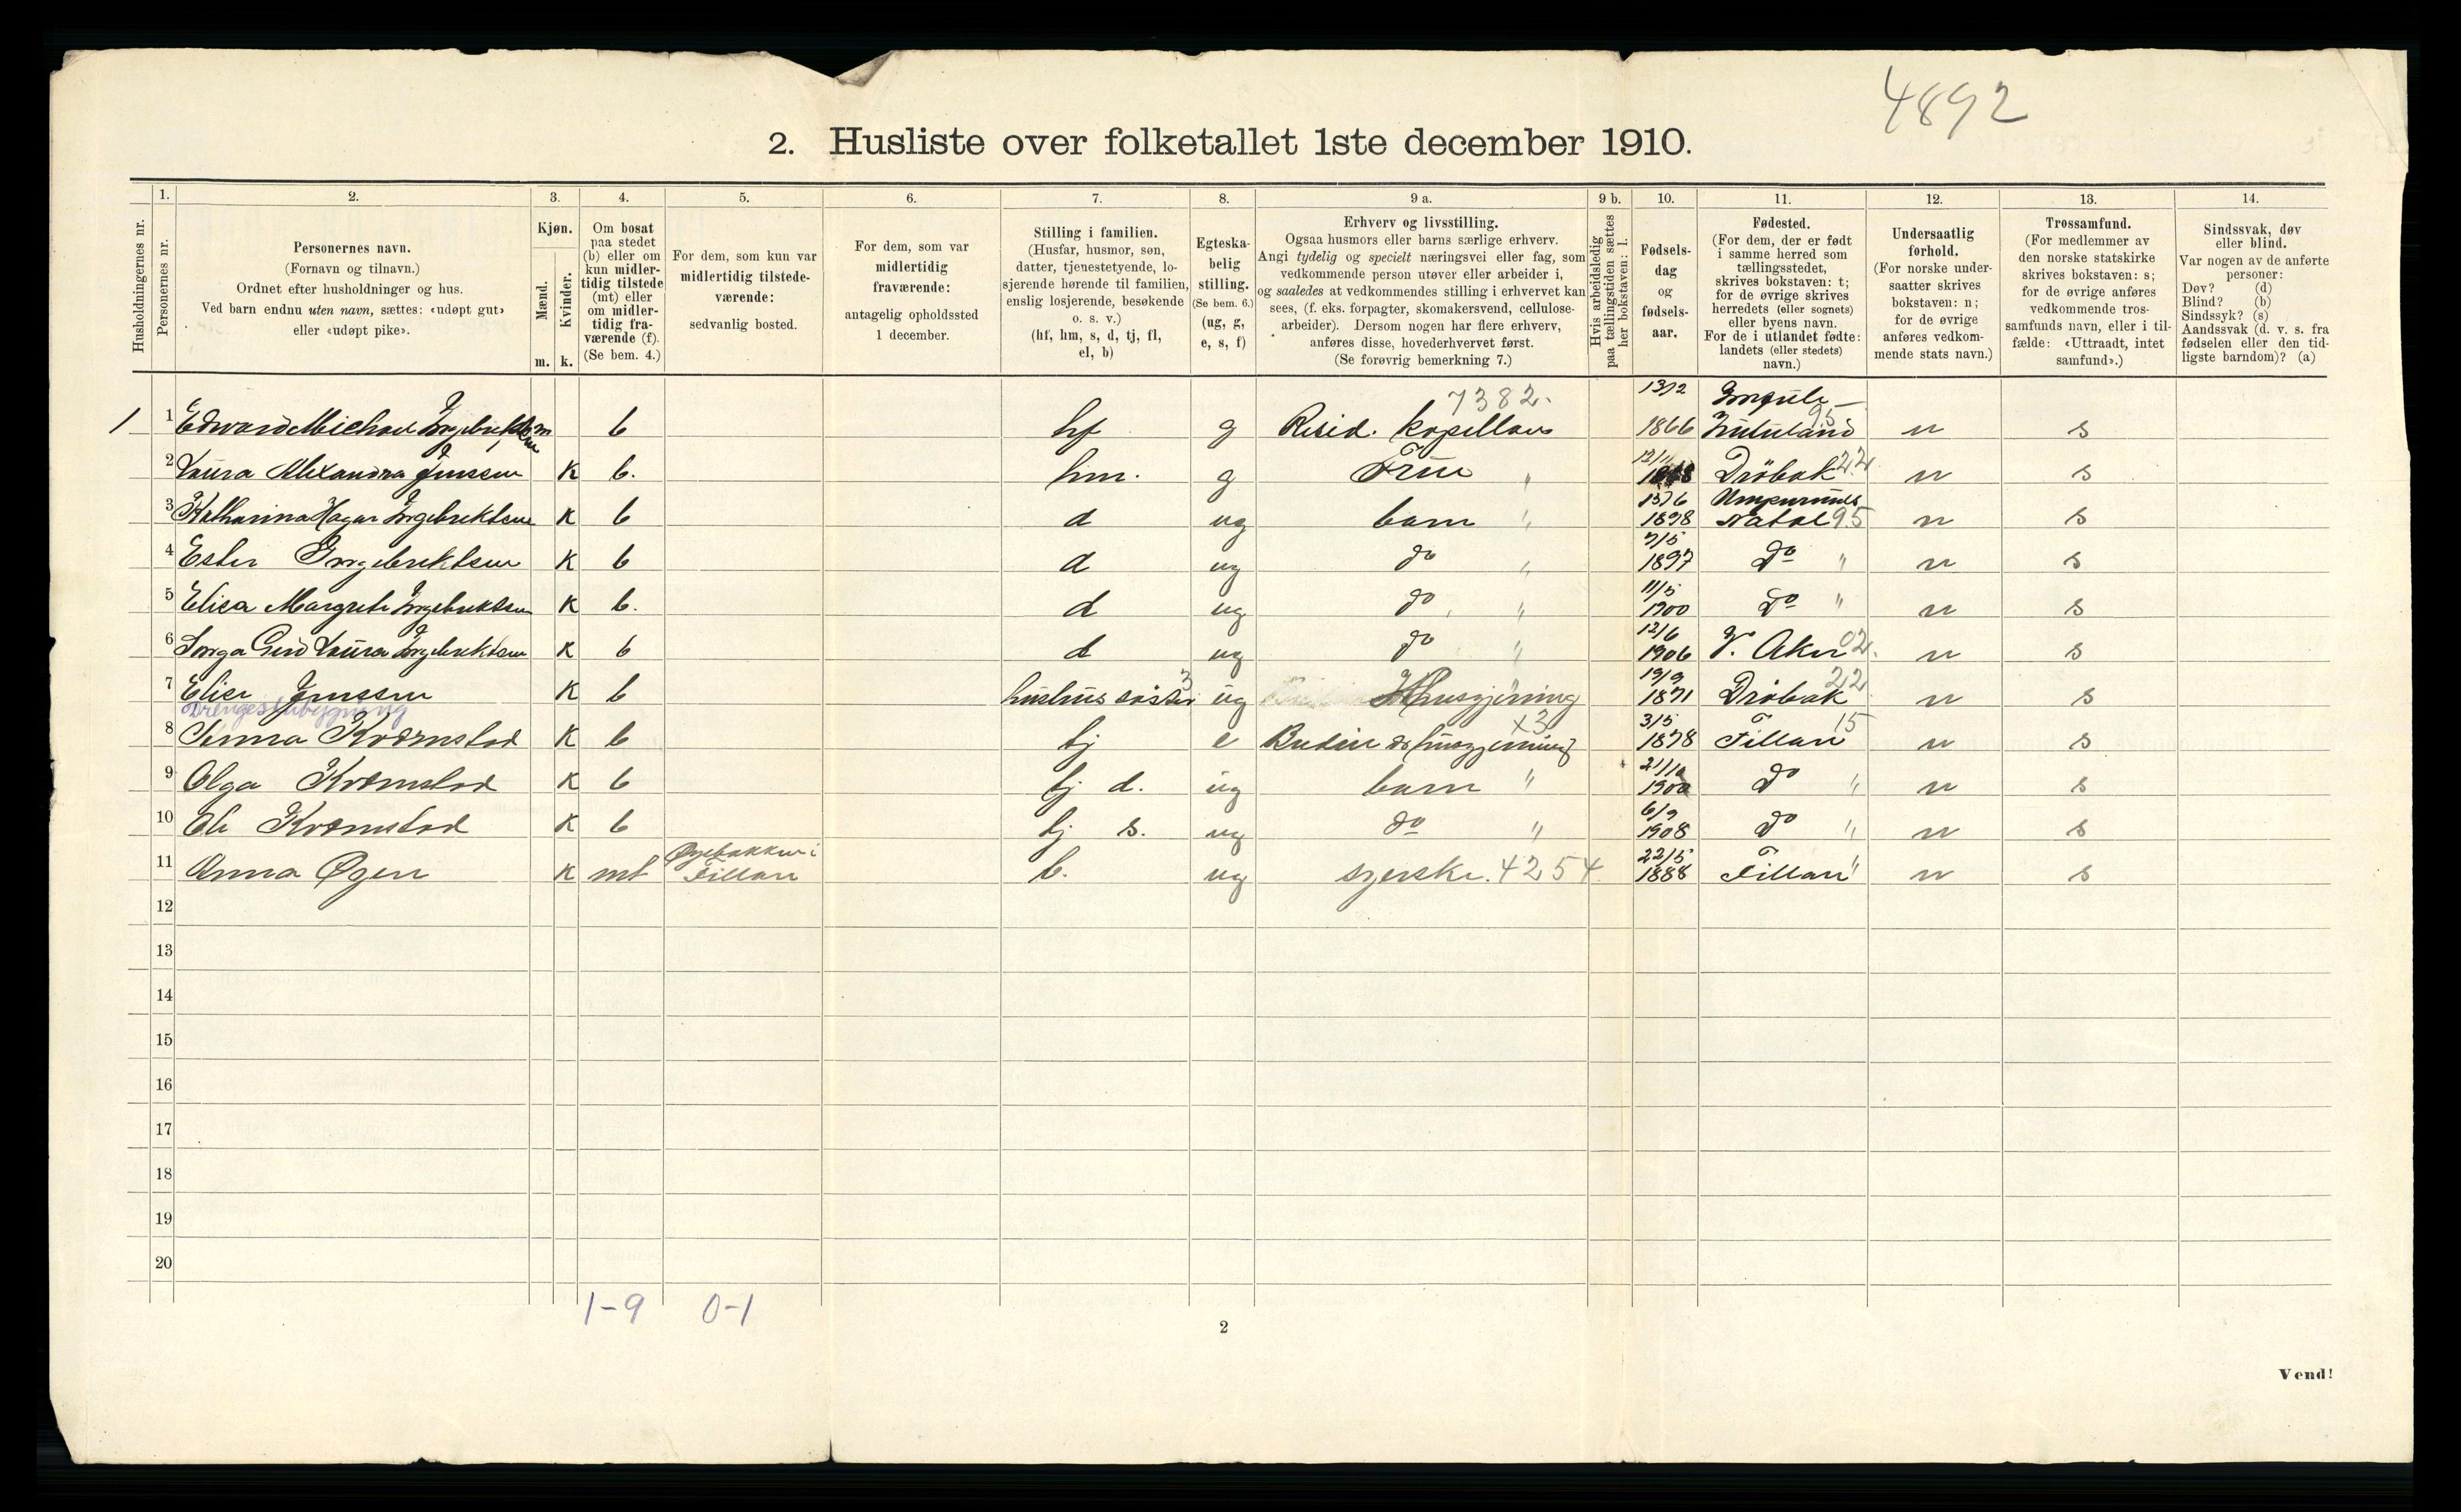 4892
2. Husliste over folketallet 1ste december 1910.
Husholdningernes nr.
1.
Personernes nr.
2.
Personernes navn.
(Fornavn og tilnavn.)
Ordnet efter husholdninger og hus.
Ved barn endnu uten navn, sættes: «udøpt gut»
eller «udøpt pike».
3.
Kjøn.
Mænd.
Kvinder.
m. k.
4.
Om bosat
paa stedet
(b) eller om
kun midler-
tidig tilstede
(mt) eller
om midler-
tidig fra-
værende (f).
(Se bem. 4.)
5.
For dem, som kun var
midlertidig tilstede-
værende:
sedvanlig bosted.
6.
For dem, som var
midlertidig
fraværende:
antagelig opholdssted
1 december.
7.
Stilling i familien.
(Husfar, husmor, søn,
datter, tjenestetyende, lo-
sjerende hørende til familien,
enslig losjerende, besøkende
o. s. v.)
(hf, hm, s, d, tj, fl,
el, b)
8.
Egteska-
belig
stilling.
(Se bem. 6.)
(ug, g,
e, s, f)
9 a.
Erhverv og livsstilling.
Ogsaa husmors eller barns særlige erhverv.
Angi tydelig og specielt næringsvei eller fag, som
vedkommende person utøver eller arbeider i,
og saaledes at vedkommendes stilling i erhvervet kan
sees, (f. eks. forpagter, skomakersvend, cellulose-
arbeider). Dersom nogen har flere erhverv,
anføres disse, hovederhvervet først.
(Se forøvrig bemerkning 7.)
9 b.
Hvis arbeidsledig
paa tællingstiden sættes
her bokstaven: l.
10.
Fødsels-
dag
og
fødsels-
aar.
11.
Fødested.
(For dem, der er født
i samme herred som
tællingsstedet,
skrives bokstaven: t;
for de øvrige skrives
herredets (eller sognets)
eller byens navn.
For de i utlandet fødte:
landets (eller stedets)
navn.)
12.
Undersaatlig
forhold.
(For norske under-
saatter skrives
bokstaven: n;
for de øvrige
anføres vedkom-
mende stats navn.)
13.
Trossamfund.
(For medlemmer av
den norske statskirke
skrives bokstaven: s;
for de øvrige anføres
vedkommende tros-
samfunds navn, eller i til-
fælde: «Uttraadt, intet
samfund».)
14.
Sindssvak, døv
eller blind.
Var nogen av de anførte
personer:
Døv? (d)
Blind? (b)
Sindssyk? (s)
Aandssvak (d. v. s. fra
fødselen eller den tid-
ligste barndom)? (a)
7382. 13/2
1 1 Edward Michael Ingebrigtsen m b hf g Resid. kapellan 1866 Zululand 95 n s
2 Laura Alexandra Jenssen K b. hm. g Frue " 12/11 Drøbak 22 n s
3 Katharina Hagar Ingebrektsen K b d ug barn " 13/6 1898 Natal 95 n s
4 Ester Ingebrektsen K b d ug do " 7/5 1897 Do " n s
5 Elisa Margrete Ingebrektsen K b. d ug do " 11/5 1900 Do " n s
6 Gerd Laura Ingebrektsen K b d ug do " 12/6 1906 V. Aker 02. n s
7 Elise Jenssen K b hustrus søster 3 ug Husgjerning 19/9 1871 Drøbak 22 n s
Drengestubygning
8 Kvernstad K b tj e Budeie & husgjerning x3 3/5 1878 Fillan 15 n s
9 Olga Kvernstad K b tj d. ug barn " 21/10 1900 Do " n s
10 Kvernstad K b tj s. ug do " 6/9 1908 Do " n s
11 Anna Øyen K mt Fillan b. ug syerske. 4254 22/5 1888 Fillan " n s
12
13
14
15
16
17
18
19
20
1-9 0-1
2
Vend!